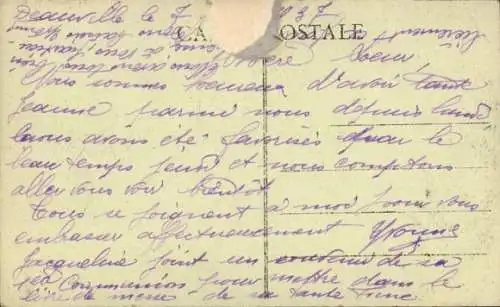 Deauville le 7
CA OSTALE
Chère Soeur
Nous sommes heureux d'avoir tante
Jeanne parmi nous depuis lundi
nous avons été favorisés par le
beau temps jeudi et nous comptons
aller vous voir bientôt
Tous se joignent à moi pour vous
embrasser affectueusement Yvonne
Jacqueline joint un souvenir de sa
1ère Communion pour mettre dans le
livre de messe de sa tante